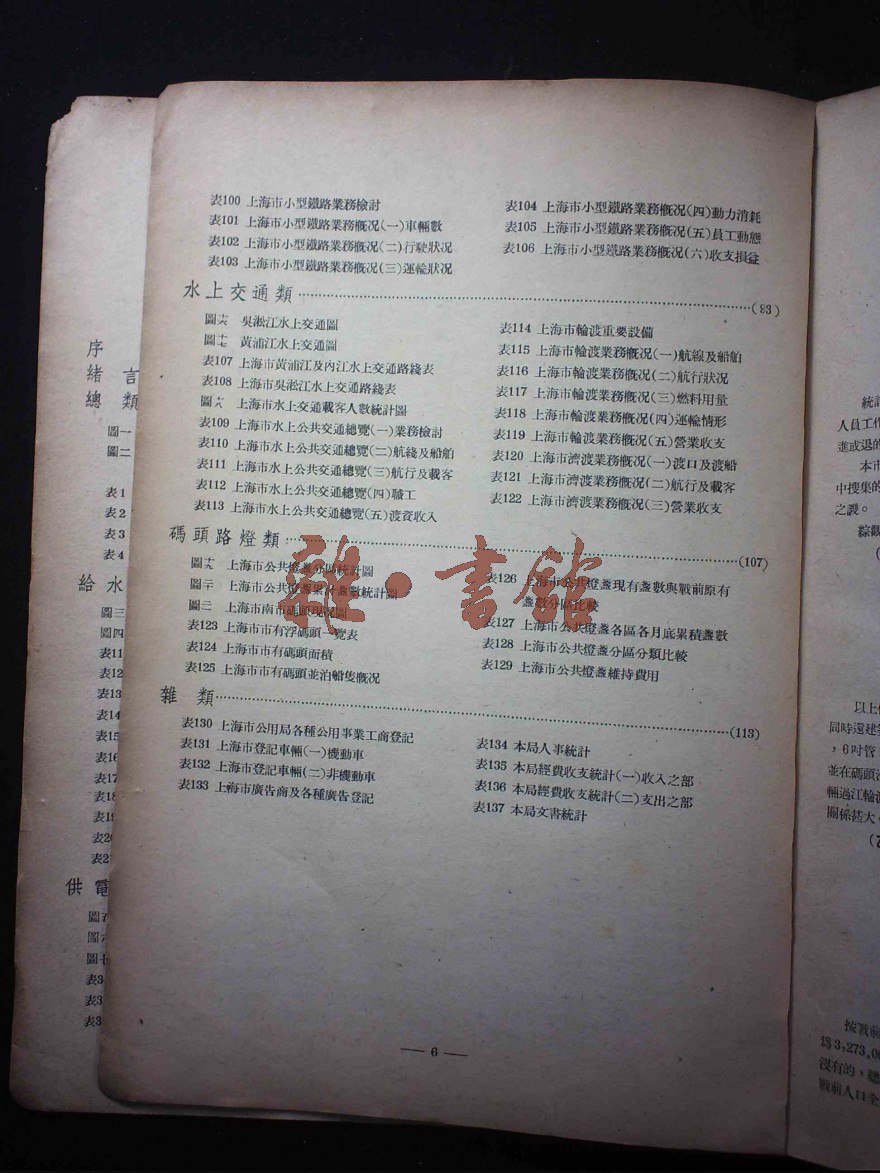 表100 上海市小型鐵路業務檢討
表101 上海市小型鐵路業務概况(一)車輛數
表102 上海市小型鐵路業務概况(二)行駛狀况
表103 上海市小型鐵路業務概况(三)運輸狀况
表104 上海市小型鐵路業務概况(四)動力消耗
表105 上海市小型鐵路業務概况(五)員工動態
表106 上海市小型鐵路業務概况(六)收支損益
水上交通類……(93)
圖十六 吳淞江水上交通圖
圖十七 黃浦江水上交通圖
表107 上海市黃浦江及內江水上交通路綫表
表108 上海市吳淞江水上交通路綫表
圖十八 上海市水上交通載客人數統計圖
表109 上海市水上公共交通總覽(一)業務檢討
表110 上海市水上公共交通總覽(二)航綫及船舶
表111 上海市水上公共交通總覽(三)航行及載客
表112 上海市水上公共交通總覽(四)職工
表113 上海市水上公共交通總覽(五)渡資收入
表114 上海市輪渡重要設備
表115 上海市輪渡業務概况(一)航線及船舶
表116 上海市輪渡業務概况(二)航行狀况
表117 上海市輪渡業務概况(三)燃料用量
表118 上海市輪渡業務概况(四)運輸情形
表119 上海市輪渡業務概况(五)營業收支
表120 上海市濟渡業務概况(一)渡口及渡船
表121 上海市濟渡業務概况(二)航行及載客
表122 上海市濟渡業務概况(三)營業收支
碼頭路燈類……(107)
圖十九 上海市公共燈盞分區統計圖
圖二十 上海市公共燈盞累計盞數統計圖
圖二一 上海市南市碼頭現况圖
表123 上海市市有浮碼頭一覽表
表124 上海市市有碼頭面積
表125 上海市市有碼頭並泊船隻概况
表126 上海市公共燈盞現有盞數與戰前原有
盞數分區比較
表127 上海市公共燈盞各區各月底累積盞數
表128 上海市公共燈盞分區分類比較
表129 上海市公共燈盞維持費用
雜 類……(113)
表130 上海市公用局各種公用事業工商登記
表131 上海市登記車輛(一)機動車
表132 上海市登記車輛(二)非機動車
表133 上海市廣告商及各種廣告登記
表134 本局人事統計
表135 本局經費收支統計(一)收入之部
表136 本局經費收支統計(二)支出之部
表137 本局文書統計
— 6 —
雜·書館
序
緒 言
總 類
圖一
圖二
表1
表2
表3
表4
給水
圖三
圖四
表11
表12
表13
表14
表15
表16
表17
表18
表19
表20
表2
供電
圖六
圖七
表3
表3
表3
統計
人員工作
進或退的
本市
中搜集的
之譏。
綜觀
以上
同時還建
，6吋管
並在碼頭
輛過江輪
關係甚大
按戰前
爲3,273,0
沒有的，總
戰前人口全